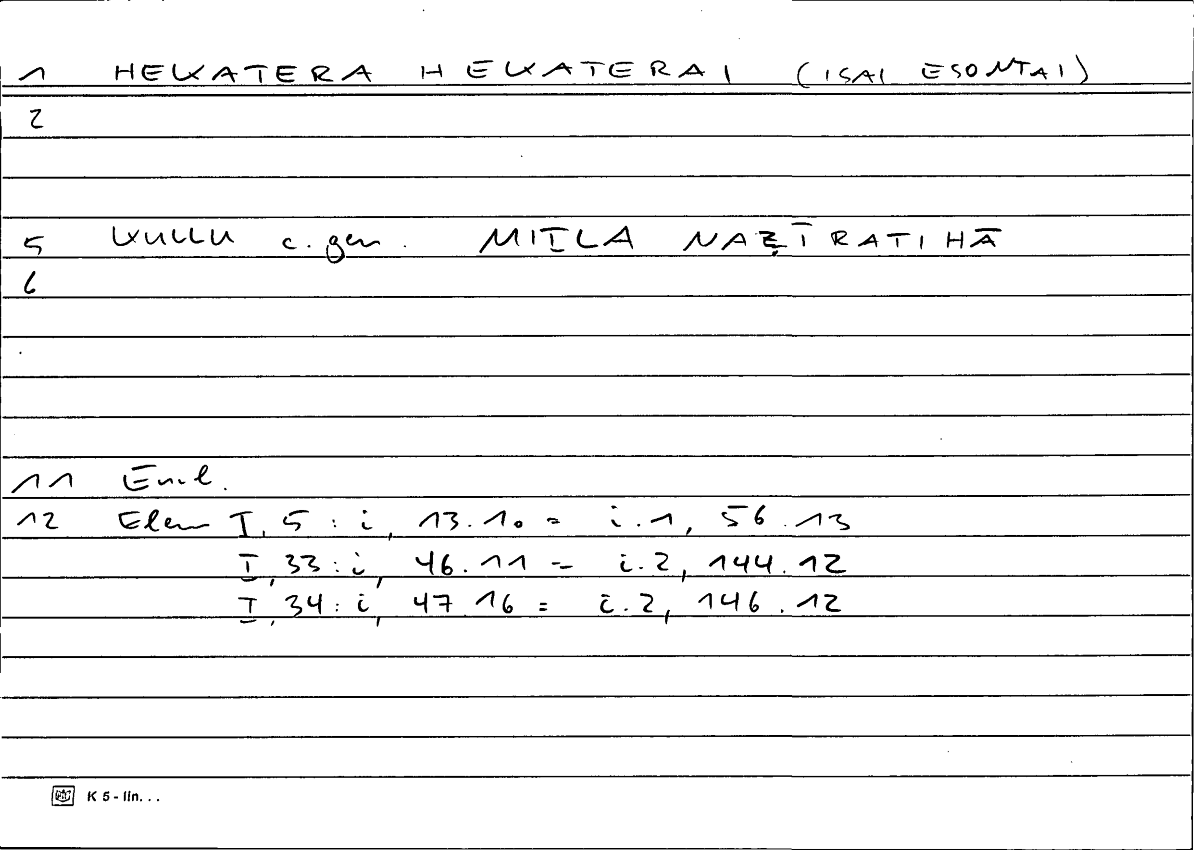 1 HEKATERA HEKATERAI (ISAI ESONTAI)
2
5 KULLU c. gen. MIṮLA NAẒĪRATIHĀ
6
11 Eucl.
12 Elem I, 5 : i, 13.10 = i.1, 56.13
I, 33 : i, 46.11 = i.2, 144.12
I, 34 : i, 47.16 = i.2, 146.12
K 5 - lin. . .